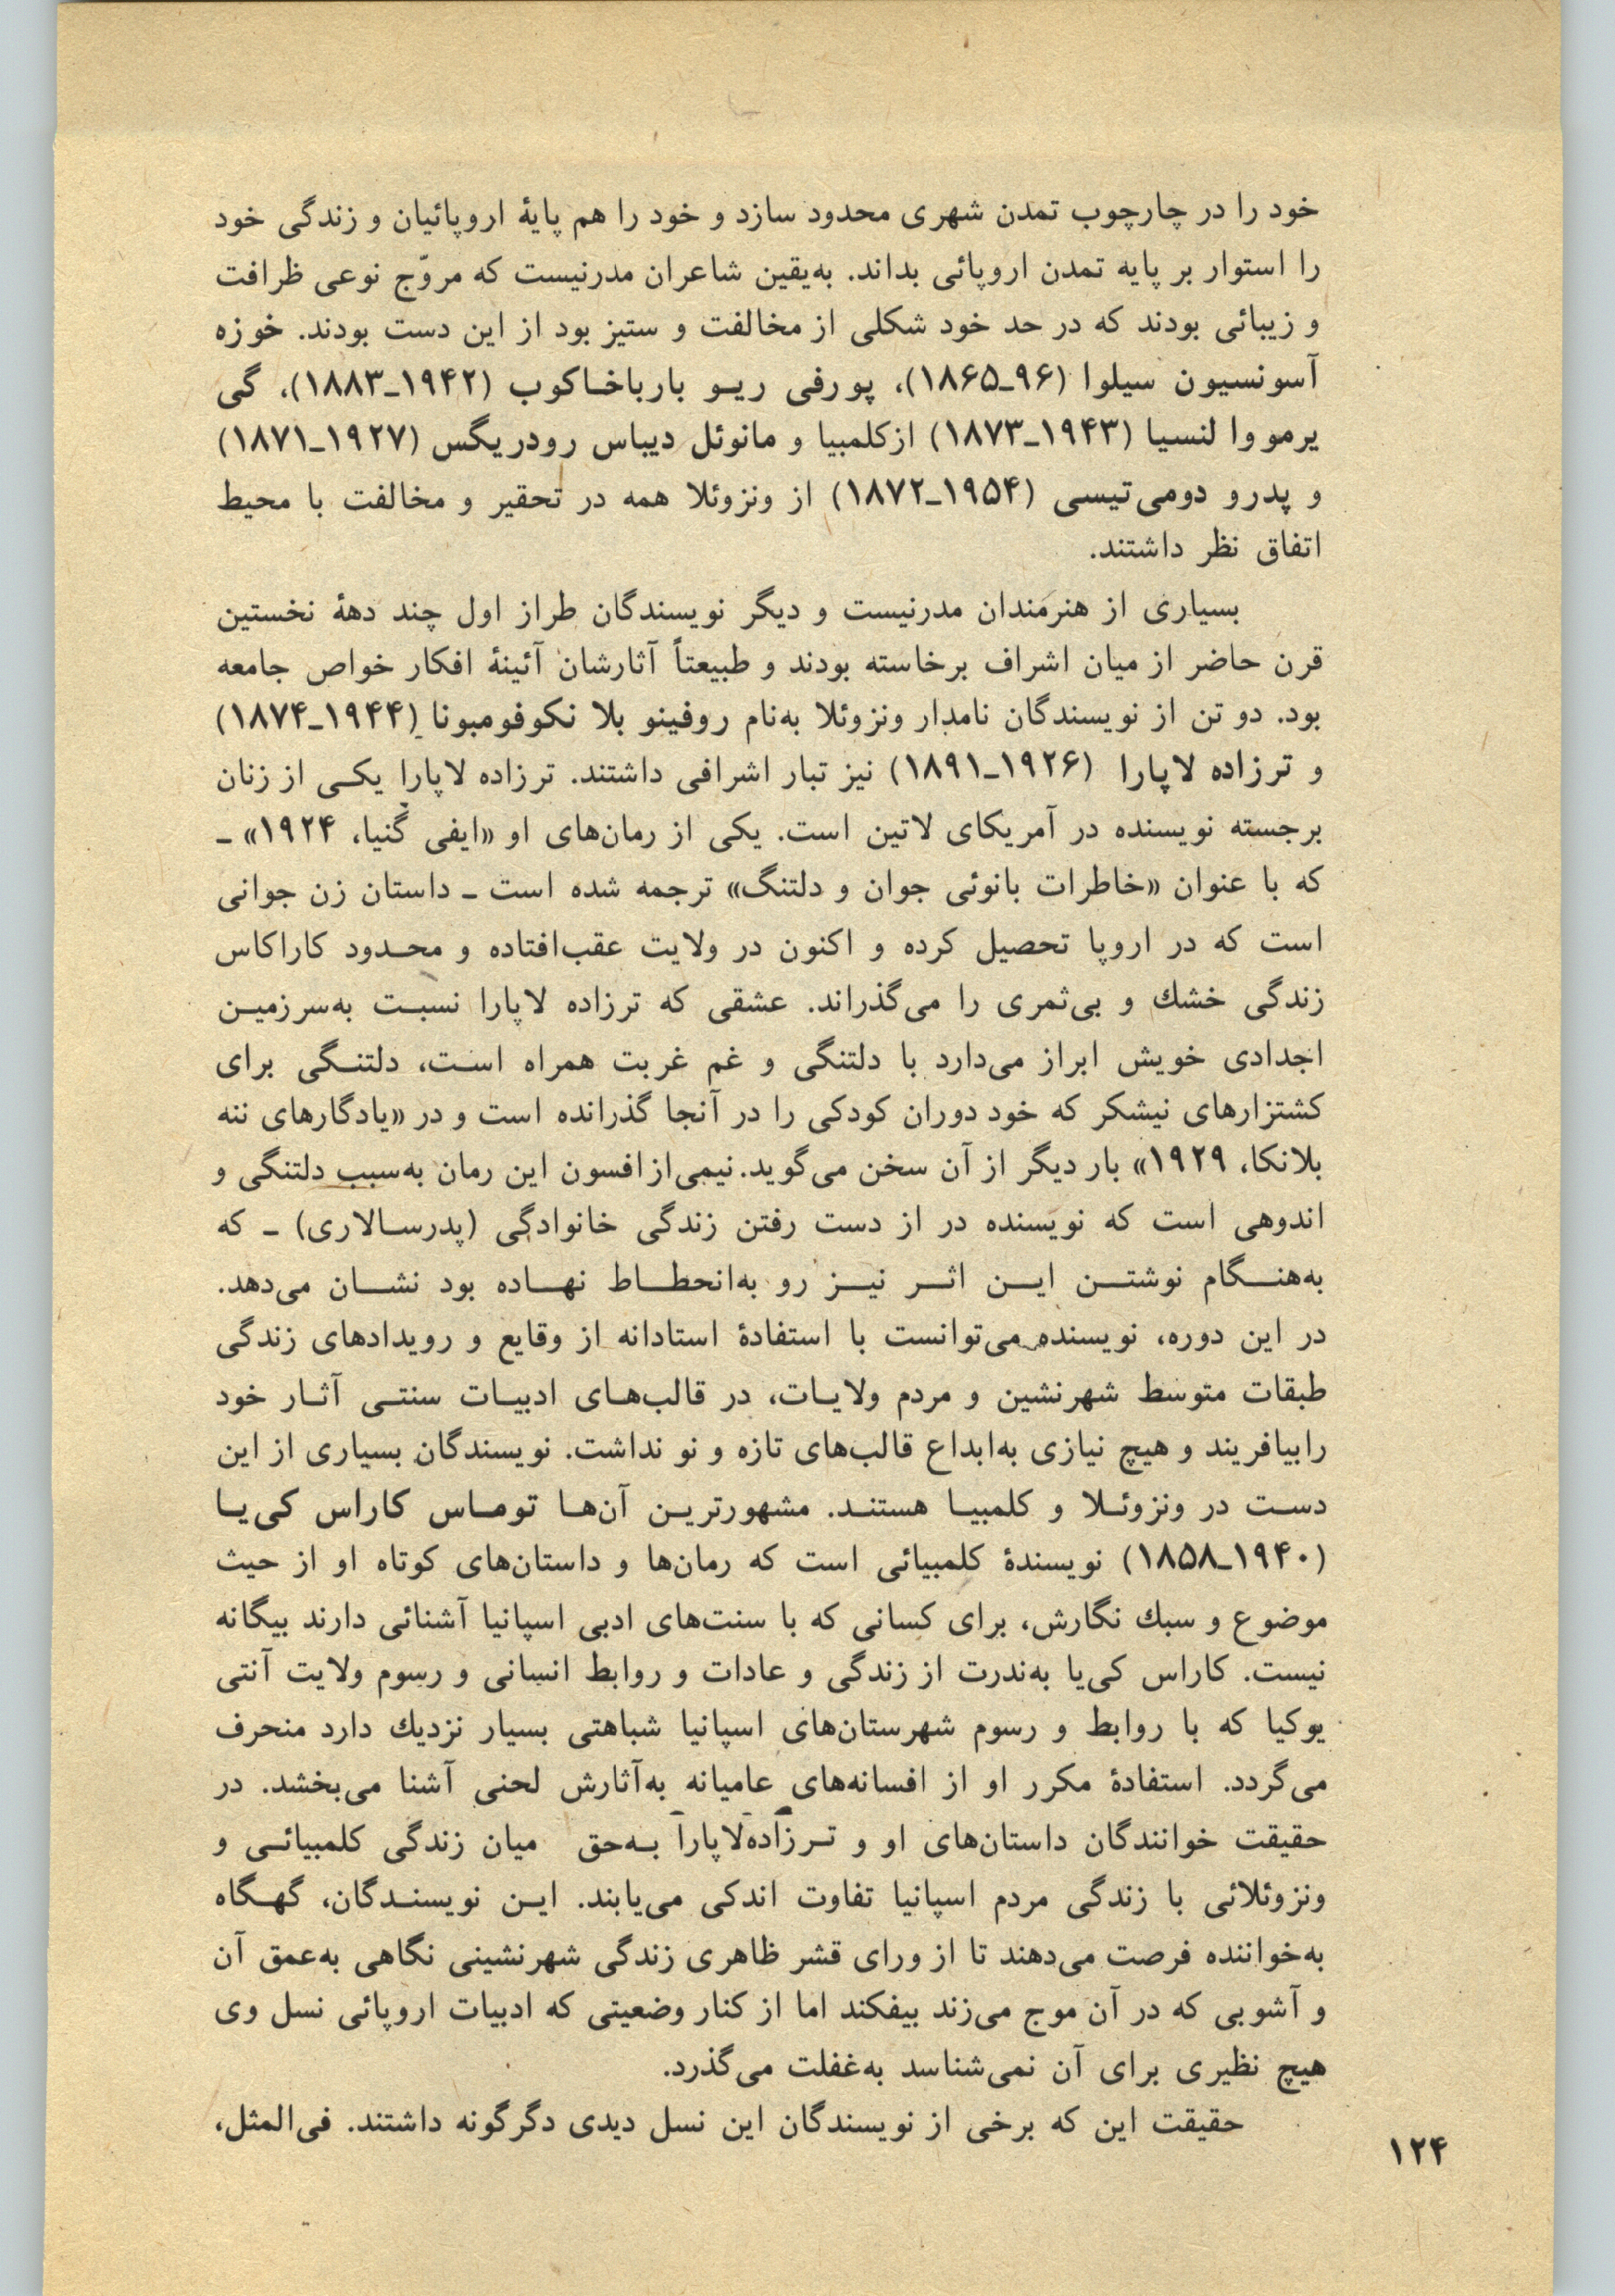 خود را در چارچوب تمدن شهری محدود سازد و خود را هم پایهٔ اروپائیان و زندگی خود
را استوار بر پایه تمدن اروپائی بداند. به‌یقین شاعران مدرنیست که مروّج نوعی ظرافت
و زیبائی بودند که در حد خود شکلی از مخالفت و ستیز بود از این دست بودند. خوزه
آسونسیون سیلوا (۹۶ـ۱۸۶۵)، پورفی ریـو بارباخـاکوب (۱۹۴۲ـ۱۸۸۳)، گی
یرمو وا لنسیا (۱۹۴۳ـ۱۸۷۳) ازکلمبیا و مانوئل دیباس رودریگس (۱۹۲۷ـ۱۸۷۱)
و پدرو دومی‌تیسی (۱۹۵۴ـ۱۸۷۲) از ونزوئلا همه در تحقیر و مخالفت با محیط
اتفاق نظر داشتند.
بسیاری از هنرمندان مدرنیست و دیگر نویسندگان طراز اول چند دههٔ نخستین
قرن حاضر از میان اشراف برخاسته بودند و طبیعتاً آثارشان آئینهٔ افکار خواص جامعه
بود. دو تن از نویسندگان نامدار ونزوئلا به‌نام روفینو بلا نکوفومبونا (۱۹۴۴ـ۱۸۷۴)
و ترزاده لاپارا (۱۹۲۶ـ۱۸۹۱) نیز تبار اشرافی داشتند. ترزاده لاپارا یکـی از زنان
برجسته نویسنده در آمریکای لاتین است. یکی از رمان‌های او «ایفی گنیا، ۱۹۲۴» ـ
که با عنوان «خاطرات بانوئی جوان و دلتنگ» ترجمه شده است ـ داستان زن جوانی
است که در اروپا تحصیل کرده و اکنون در ولایت عقب‌افتاده و محـدود کاراکاس
زندگی خشك و بی‌ثمری را می‌گذراند. عشقی که ترزاده لاپارا نسبـت به‌سرزمیـن
اجدادی خویش ابراز می‌دارد با دلتنگی و غم غربت همراه اسـت، دلتنـگی برای
کشتزارهای نیشکر که خود دوران کودکی را در آنجا گذرانده است و در «یادگارهای ننه
بلانکا، ۱۹۲۹» بار دیگر از آن سخن می‌گوید. نیمی‌از افسون این رمان به‌سبب دلتنگی و
اندوهی است که نویسنده در از دست رفتن زندگی خانوادگی (پدرسـالاری) ـ که
به‌هنـگام نوشتـن ایـن اثـر نیـز رو به‌انحطـاط نهـاده بود نشـان می‌دهد.
در این دوره، نویسنده می‌توانست با استفادهٔ استادانه از وقایع و رویدادهای زندگی
طبقات متوسط شهرنشین و مردم ولایـات، در قالب‌هـای ادبیـات سنتـی آثـار خود
رابیافریند و هیچ نیازی به‌ابداع قالب‌های تازه و نو نداشت. نویسندگان بسیاری از این
دسـت در ونزوئـلا و کلمبیـا هستنـد. مشهورتریـن آن‌هـا تومـاس کاراس کی‌یـا
(۱۹۴۰ـ۱۸۵۸) نویسندهٔ کلمبیائی است که رمان‌ها و داستان‌های کوتاه او از حیث
موضوع و سبك نگارش، برای کسانی که با سنت‌های ادبی اسپانیا آشنائی دارند بیگانه
نیست. کاراس کی‌یا به‌ندرت از زندگی و عادات و روابط انسانی و رسوم ولایت آنتی
یوکیا که با روابط و رسوم شهرستان‌های اسپانیا شباهتی بسیار نزدیك دارد منحرف
می‌گردد. استفادهٔ مکرر او از افسانه‌های عامیانه به‌آثارش لحنی آشنا می‌بخشد. در
حقیقت خوانندگان داستان‌های او و تـرزاده‌لاپارا بـه‌حق میان زندگی کلمبیائـی و
ونزوئلائی با زندگی مردم اسپانیا تفاوت اندکی می‌یابند. ایـن نویسنـدگان، گهـگاه
به‌خواننده فرصت می‌دهند تا از ورای قشر ظاهری زندگی شهرنشینی نگاهی به‌عمق آن
و آشوبی که در آن موج می‌زند بیفکند اما از کنار وضعیتی که ادبیات اروپائی نسل وی
هیچ نظیری برای آن نمی‌شناسد به‌غفلت می‌گذرد.
حقیقت این که برخی از نویسندگان این نسل دیدی دگرگونه داشتند. فی‌المثل،
۱۲۴